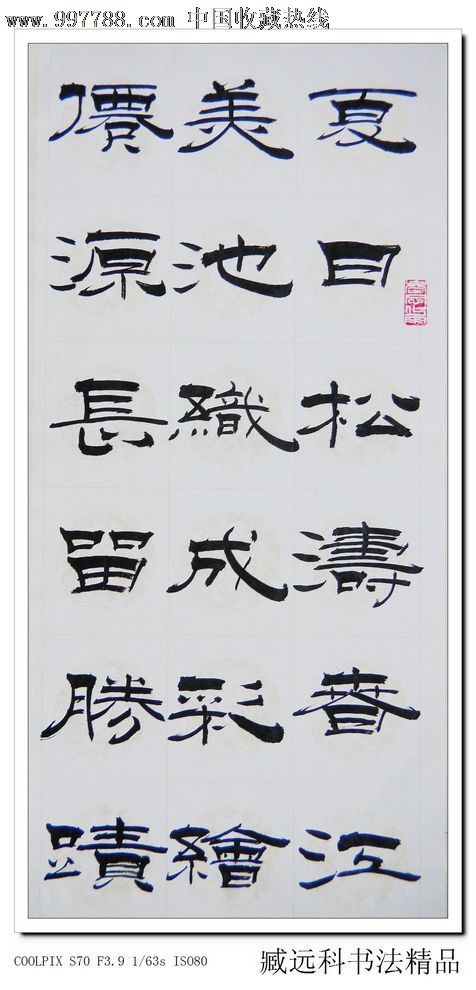 www.997788.com 中国收藏热线
夏日松濤春江
美池織成彩繪
僊源長留勝蹟
COOLPIX S70 F3.9 1/63s ISO80
臧远科书法精品